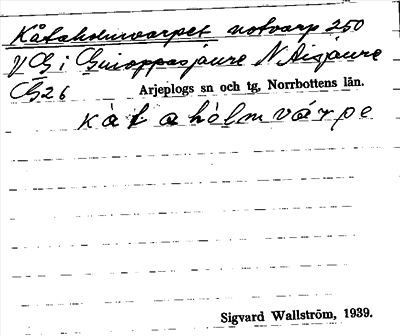 Kåtaholmvarpet notvarp 250
V G i Guioppasjaure N Aisjaure
G 26 Arjeplogs sn och tg, Norrbottens län.
kàtahòlmvárpe
Sigvard Wallström, 1939.